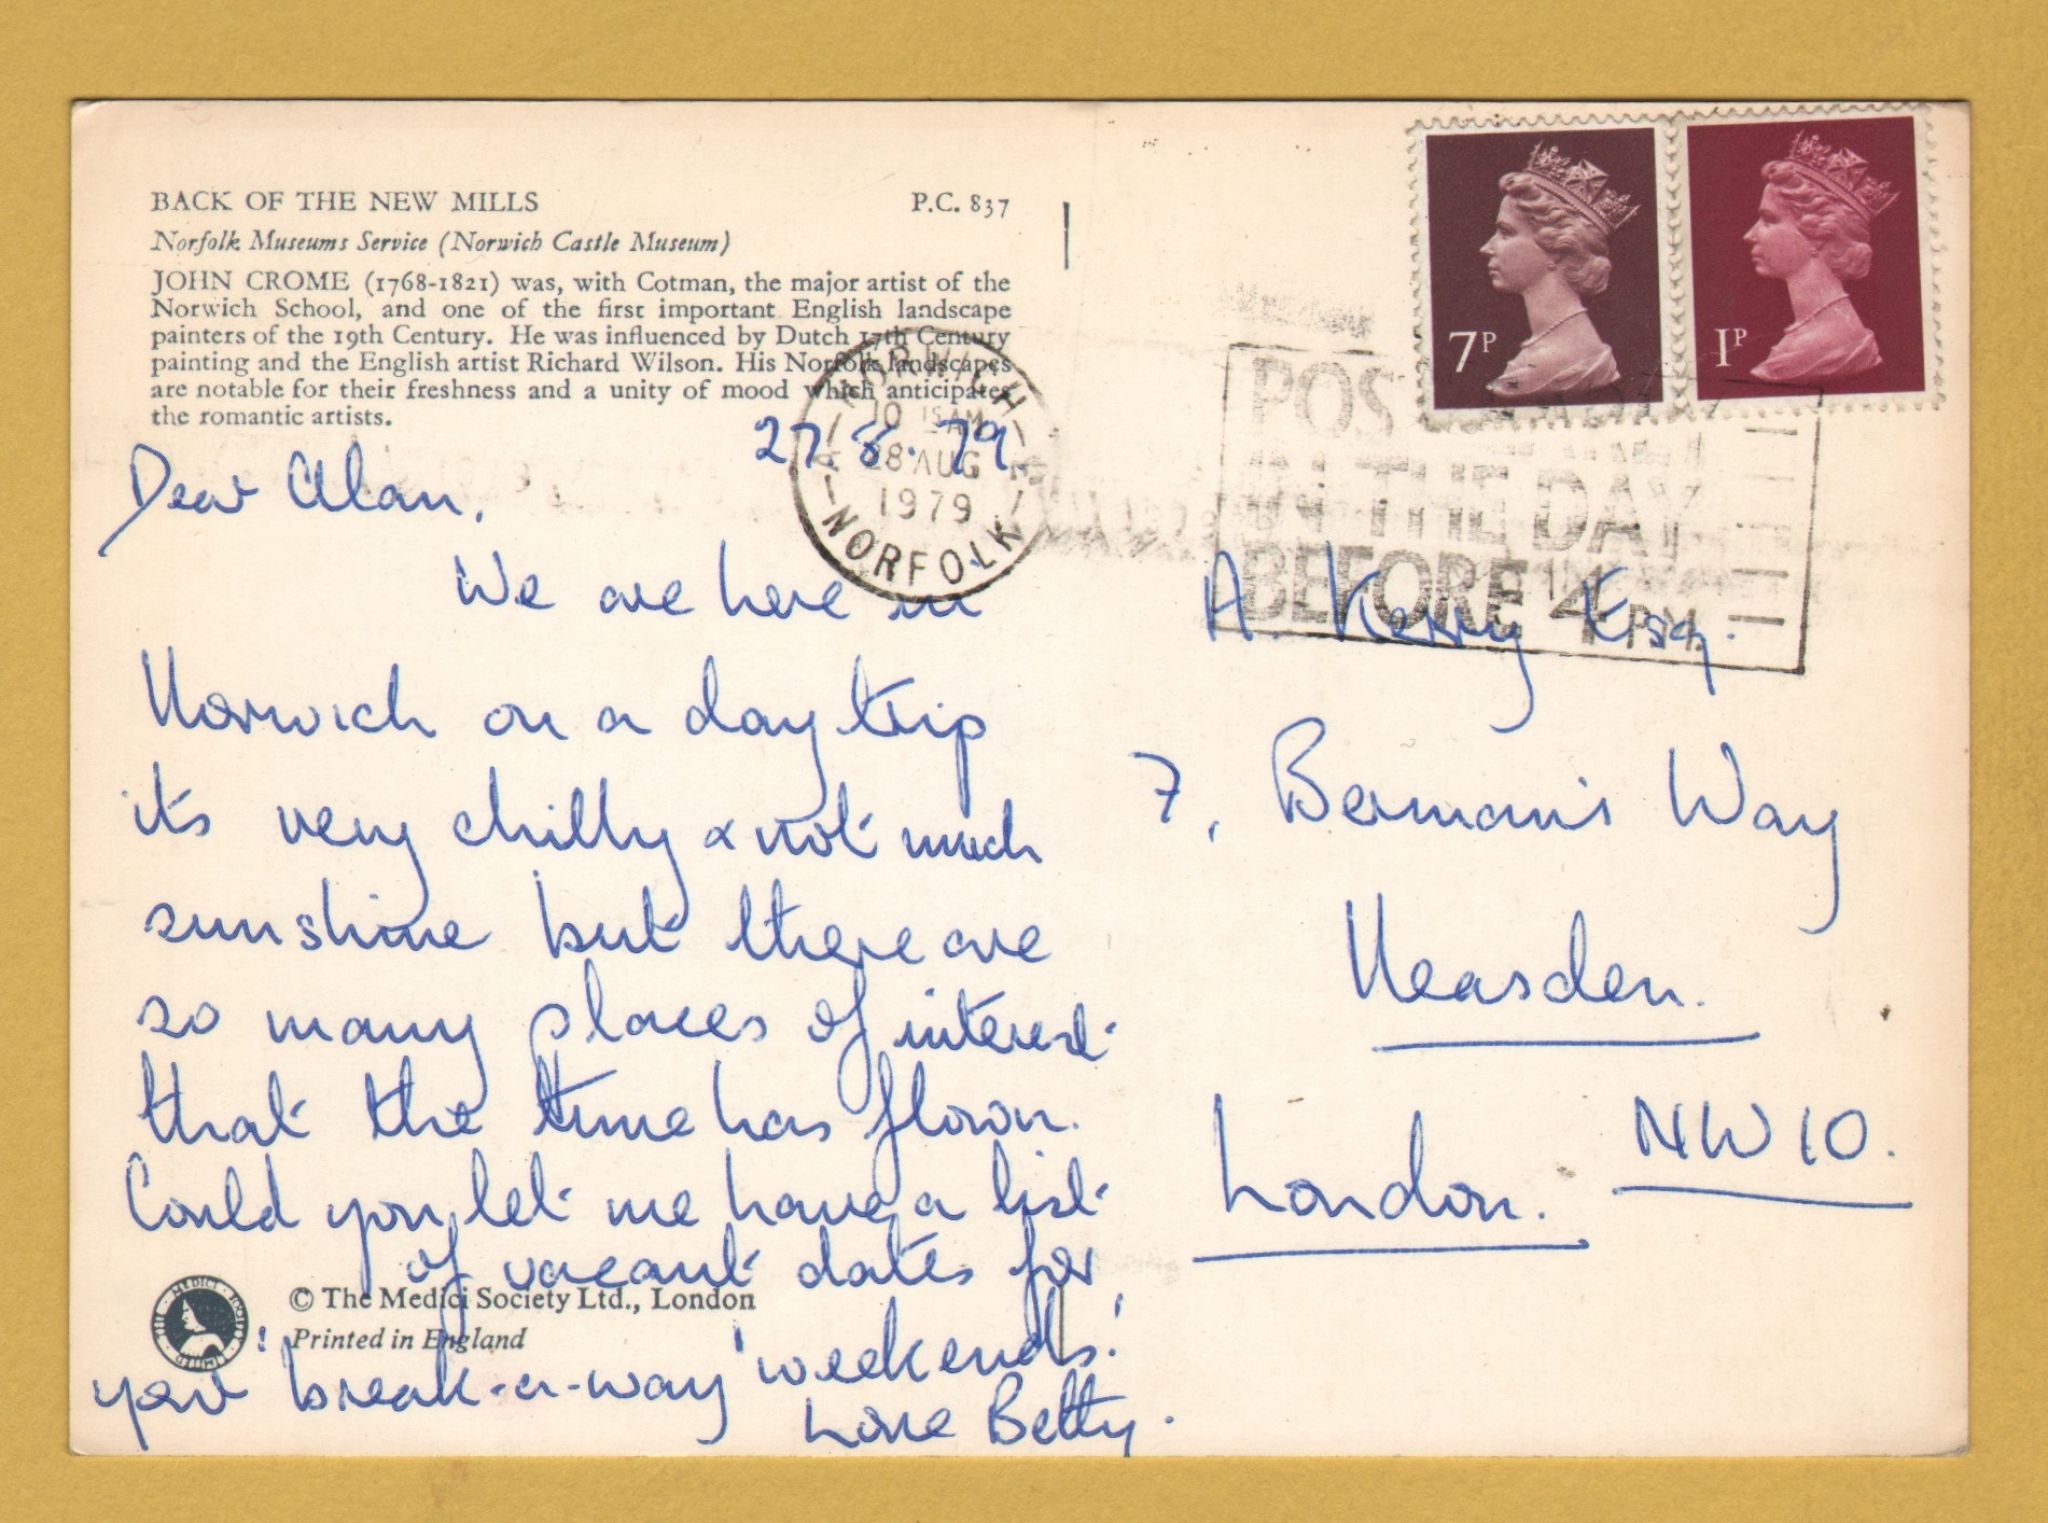 BACK OF THE NEW MILLS P.C. 837
Norfolk Museums Service (Norwich Castle Museum)
JOHN CROME (1768-1821) was, with Cotman, the major artist of the
Norwich School, and one of the first important English landscape
painters of the 19th Century. He was influenced by Dutch 17th Century
painting and the English artist Richard Wilson. His Norfolk landscapes
are notable for their freshness and a unity of mood which anticipates
the romantic artists.
27.8.79
Dear Alan,
We are here in
Norwich on a day trip
it's very chilly & not much
sunshine but there are
so many places of interest
that the time has flown.
Could you let me have a list
of vacant dates for
your 'break-a-way' weekends!
Love Betty.
© The Medici Society Ltd., London
Printed in England
THE MEDICI SOCIETY LIMITED
NORWICH
10 15 AM
28 AUG
1979
NORFOLK
7P
1P
POST EARLY
IN THE DAY
BEFORE 4PM
A. Kerry Esq.
7, Berman's Way
Neasden.
London. NW10.